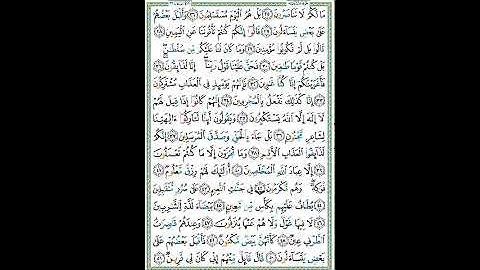 مَا لَكُمْ لَا تَنَاصَرُونَ ٢٥ بَلْ هُمُ ٱلْيَوْمَ مُسْتَسْلِمُونَ ٢٦ وَأَقْبَلَ بَعْضُهُمْ
عَلَىٰ بَعْضٍ يَتَسَآءَلُونَ ٢٧ قَالُوٓا۟ إِنَّكُمْ كُنتُمْ تَأْتُونَنَا عَنِ ٱلْيَمِينِ ٢٨
قَالُوا۟ بَل لَّمْ تَكُونُوا۟ مُؤْمِنِينَ ٢٩ وَمَا كَانَ لَنَا عَلَيْكُم مِّن سُلْطَٰنٍۭ
بَلْ كُنتُمْ قَوْمًا طَٰغِينَ ٣٠ فَحَقَّ عَلَيْنَا قَوْلُ رَبِّنَآ إِنَّا لَذَآئِقُونَ ٣١
فَأَغْوَيْنَٰكُمْ إِنَّا كُنَّا غَٰوِينَ ٣٢ فَإِنَّهُمْ يَوْمَئِذٍ فِى ٱلْعَذَابِ مُشْتَرِكُونَ
٣٣ إِنَّا كَذَٰلِكَ نَفْعَلُ بِٱلْمُجْرِمِينَ ٣٤ إِنَّهُمْ كَانُوٓا۟ إِذَا قِيلَ لَهُمْ
لَآ إِلَٰهَ إِلَّا ٱللَّهُ يَسْتَكْبِرُونَ ٣٥ وَيَقُولُونَ أَئِنَّا لَتَارِكُوٓا۟ ءَالِهَتِنَا
لِشَاعِرٍ مَّجْنُونٍۭ ٣٦ بَلْ جَآءَ بِٱلْحَقِّ وَصَدَّقَ ٱلْمُرْسَلِينَ ٣٧ إِنَّكُمْ
لَذَآئِقُوا۟ ٱلْعَذَابِ ٱلْأَلِيمِ ٣٨ وَمَا تُجْزَوْنَ إِلَّا مَا كُنتُمْ تَعْمَلُونَ ٣٩
إِلَّا عِبَادَ ٱللَّهِ ٱلْمُخْلَصِينَ ٤٠ أُو۟لَٰٓئِكَ لَهُمْ رِزْقٌ مَّعْلُومٌ ٤١
فَوَٰكِهُ وَهُم مُّكْرَمُونَ ٤٢ فِى جَنَّٰتِ ٱلنَّعِيمِ ٤٣ عَلَىٰ سُرُرٍ مُّتَقَٰبِلِينَ
٤٤ يُطَافُ عَلَيْهِم بِكَأْسٍ مِّن مَّعِينٍۭ ٤٥ بَيْضَآءَ لَذَّةٍ لِّلشَّٰرِبِينَ
٤٦ لَا فِيهَا غَوْلٌ وَلَا هُمْ عَنْهَا يُنزَفُونَ ٤٧ وَعِندَهُمْ قَٰصِرَٰتُ
ٱلطَّرْفِ عِينٌ ٤٨ كَأَنَّهُنَّ بَيْضٌ مَّكْنُونٌ ٤٩ فَأَقْبَلَ بَعْضُهُمْ عَلَىٰ
بَعْضٍ يَتَسَآءَلُونَ ٥٠ قَالَ قَآئِلٌ مِّنْهُمْ إِنِّى كَانَ لِى قَرِينٌ ٥١